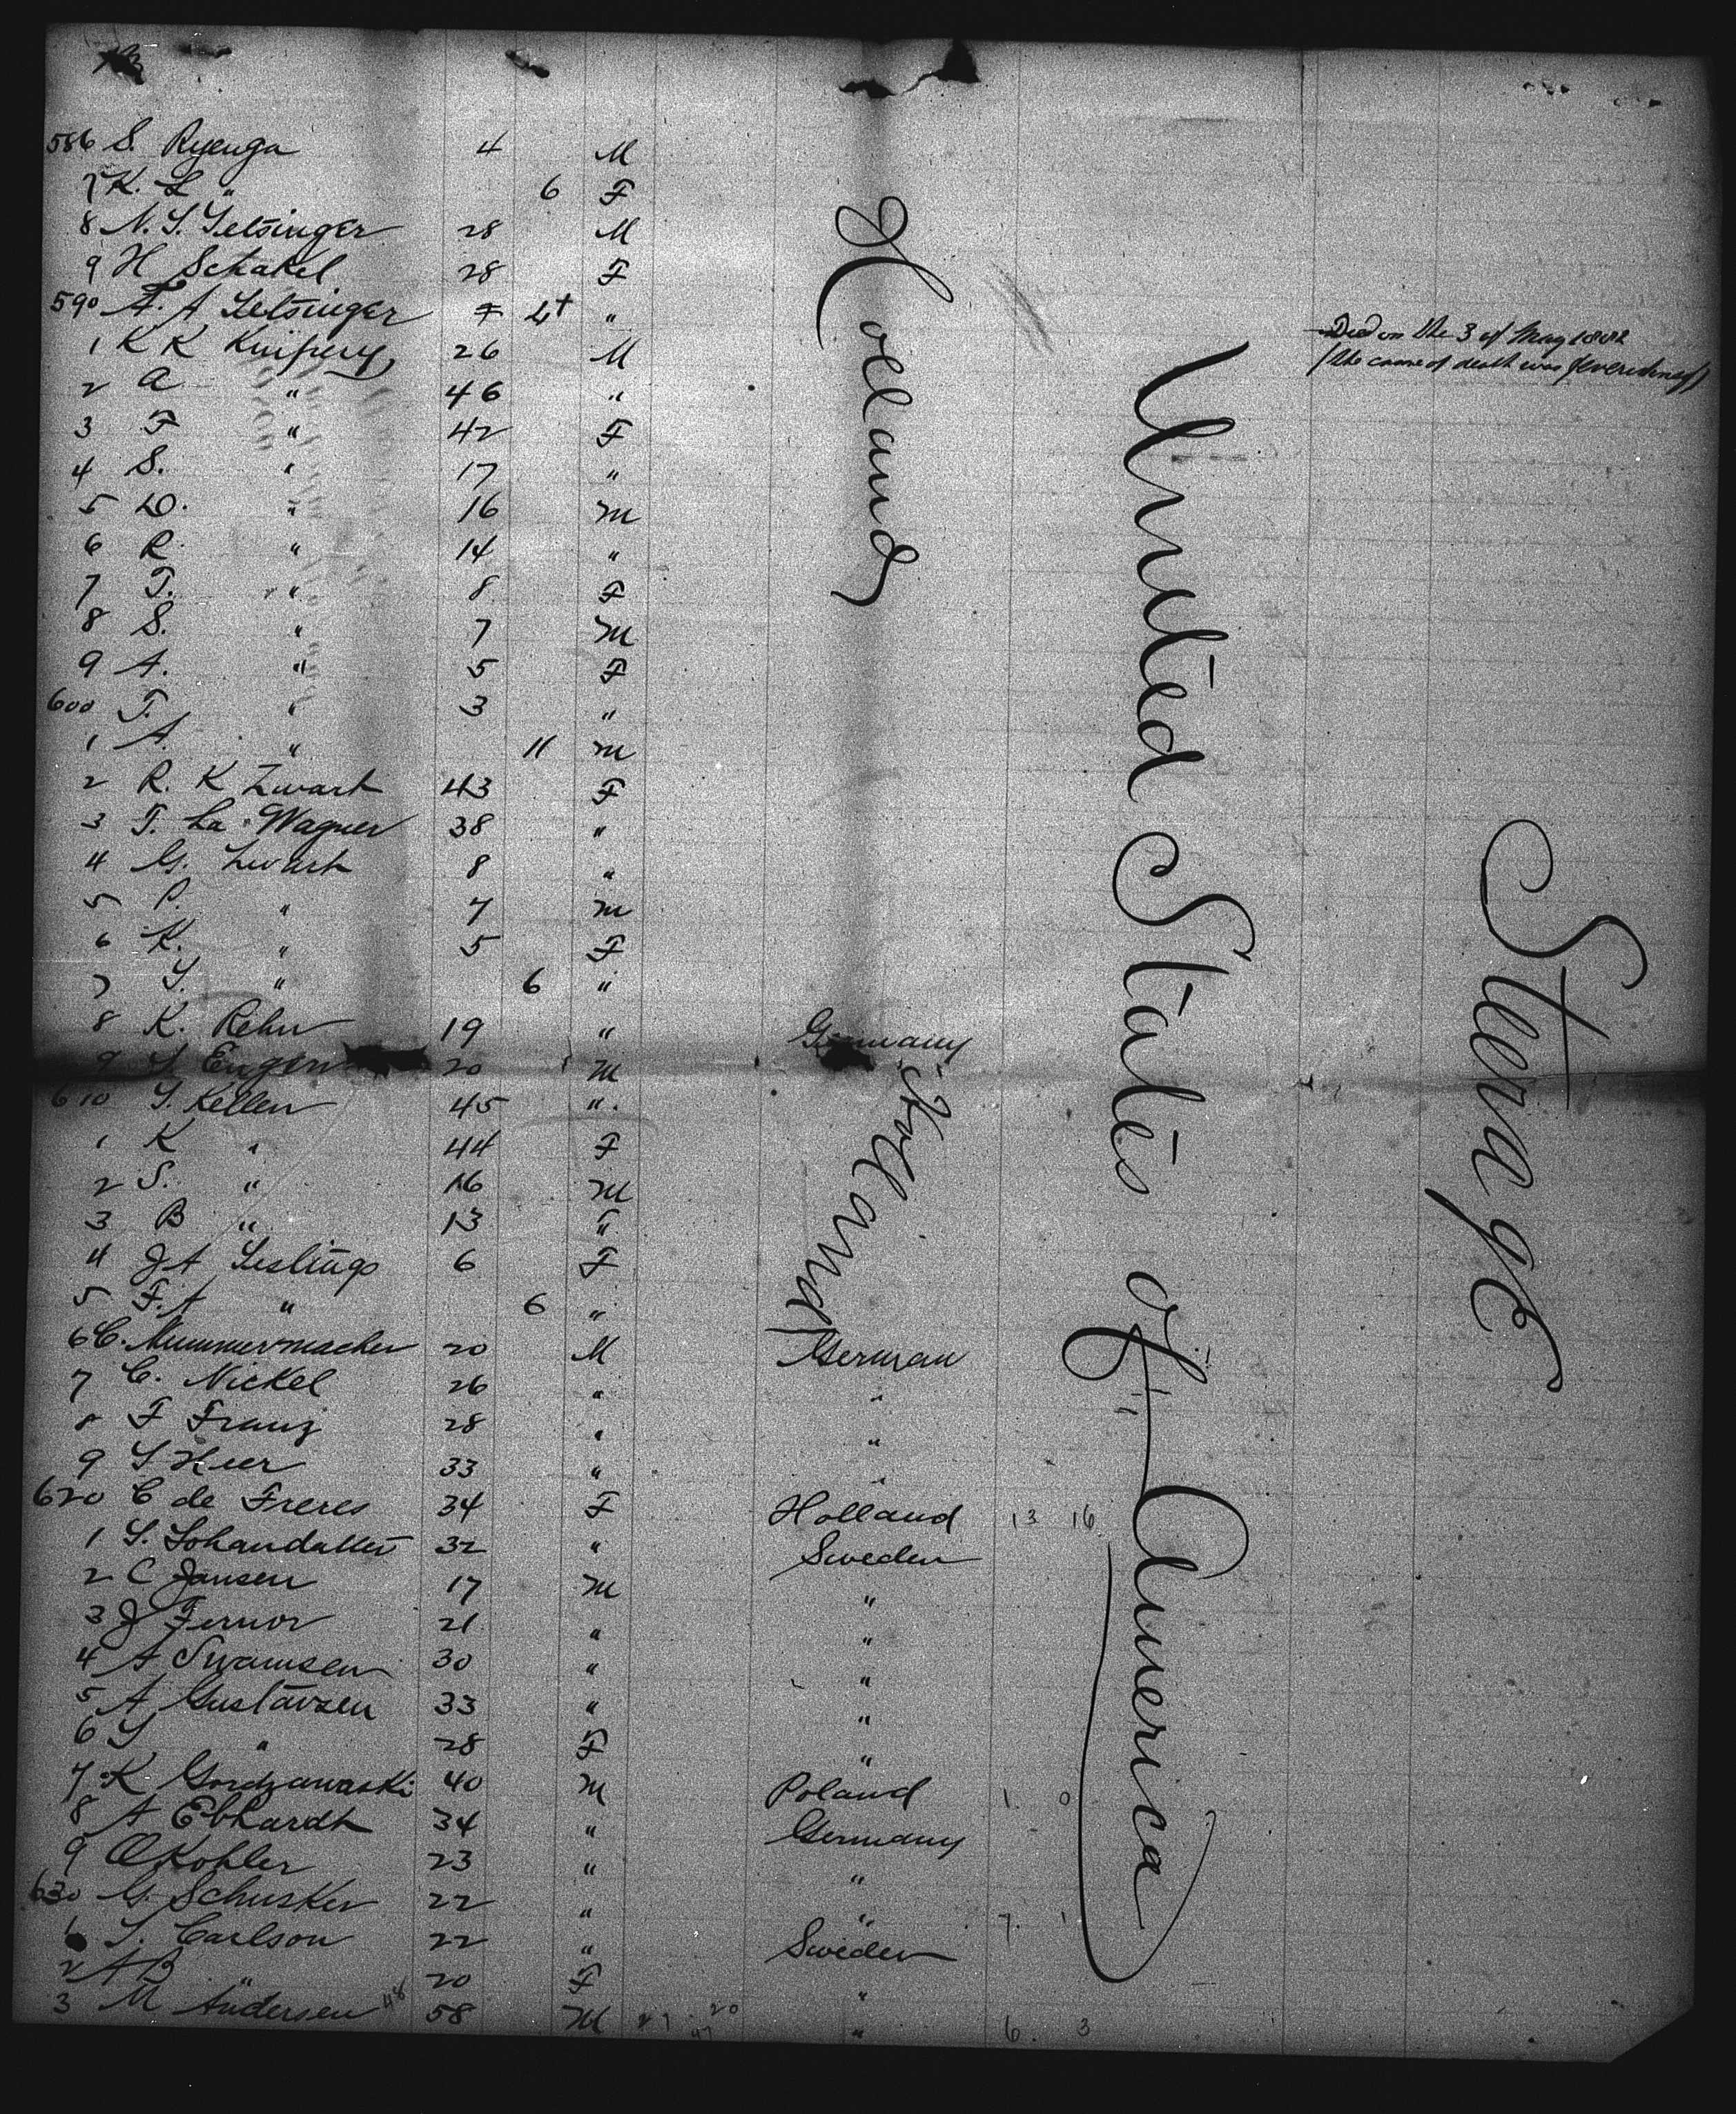 586 S. Ryenga 4 M
7 K. L " 6 F
8 N. S. Setsinger 28 M
9 H Schakel 28 F
590 A. A Setsinger 4 "
Died on the 3 of May 1882
1 K K Kuipery 26 M
(the cause of death was
2 A " 46 "
3 F " 42 F
4 S. " 17 "
5 D. " 16 M
6 R. " 14 "
7 T. " 8 F
8 S. " 7 M
9 A. " 5 F
600 T. " 3 "
1 A. " 11 M
2 R. K Zwart 43 F
3 T. La Wagner 38 "
4 G. Zwart 8 "
5 P. " 7 M
6 K. " 5 F
7 S. " 6 "
8 K. Rehn 19 " Germany
9 S Eugen 20 M
610 S. Kellen 45 "
1 K " 44 F
2 S. " 16 M
3 B " 13 "
4 J A Seslings 6 F
5 F. A " 6 "
6 C. Mummermacher 20 M German
7 C. Nickel 26 " "
8 F Franz 28 " "
9 S Heer 33 " "
620 C de Freres 34 F Holland 13 16
1 S. Johandatter 32 " Sweden
2 C Jansen 17 M "
3 J Fernor 21 " "
4 A Swamsen 30 " "
5 A Gustavsen 33 " "
6 S " 28 F "
7 K Gordzawaski 40 M Poland 1 0
8 A Ebhardt 34 " Germany
9 O Kohler 23 " "
630 G. Schusker 22 " " 7 1
1 S. Carlson 22 " Sweden
2 A B " 20 F "
3 M Andersen 48 58 M 27 20 47 " 6 3
Holland
Holland
United States of America
Sterage